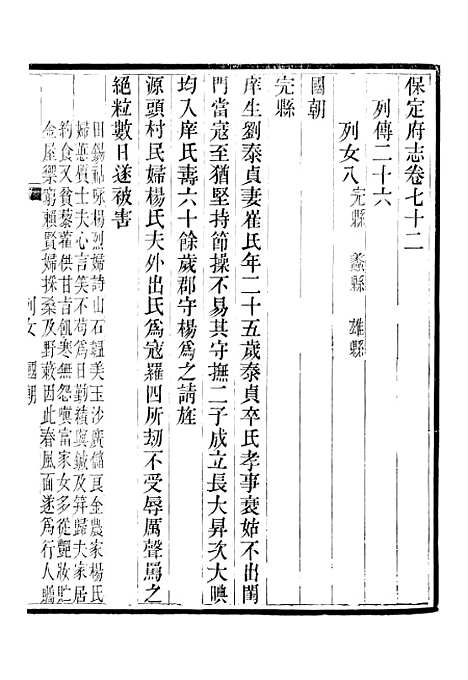 保定府志卷七十二
列傳二十六
列女八 完縣 蠡縣 雄縣
國朝
完縣
庠生劉泰貞妻崔氏年二十五歲泰貞卒氏孝事衰姑不出閨
門當寇至猶堅持節操不易其守撫二子成立長大昇次大𣈶
均入庠氏壽六十餘歲郡守楊為之請旌
源頭村民婦楊氏夫外出氏為寇羅四所劫不受辱厲聲罵之
絕粒數日遂被害
田錫祜咏楊烈婦詩山石韞美玉沙礫儲良金農家楊氏
婦蕙質士夫心言笑不苟為日勤績與鍼及笄歸夫家居
約食又貧藜藿供甘旨飢寒無怨嗔富家女多從艷妝貯
金屋樂窮賴賢婦採桑及野蔌因此春風面遂為行人矚
列女 國朝